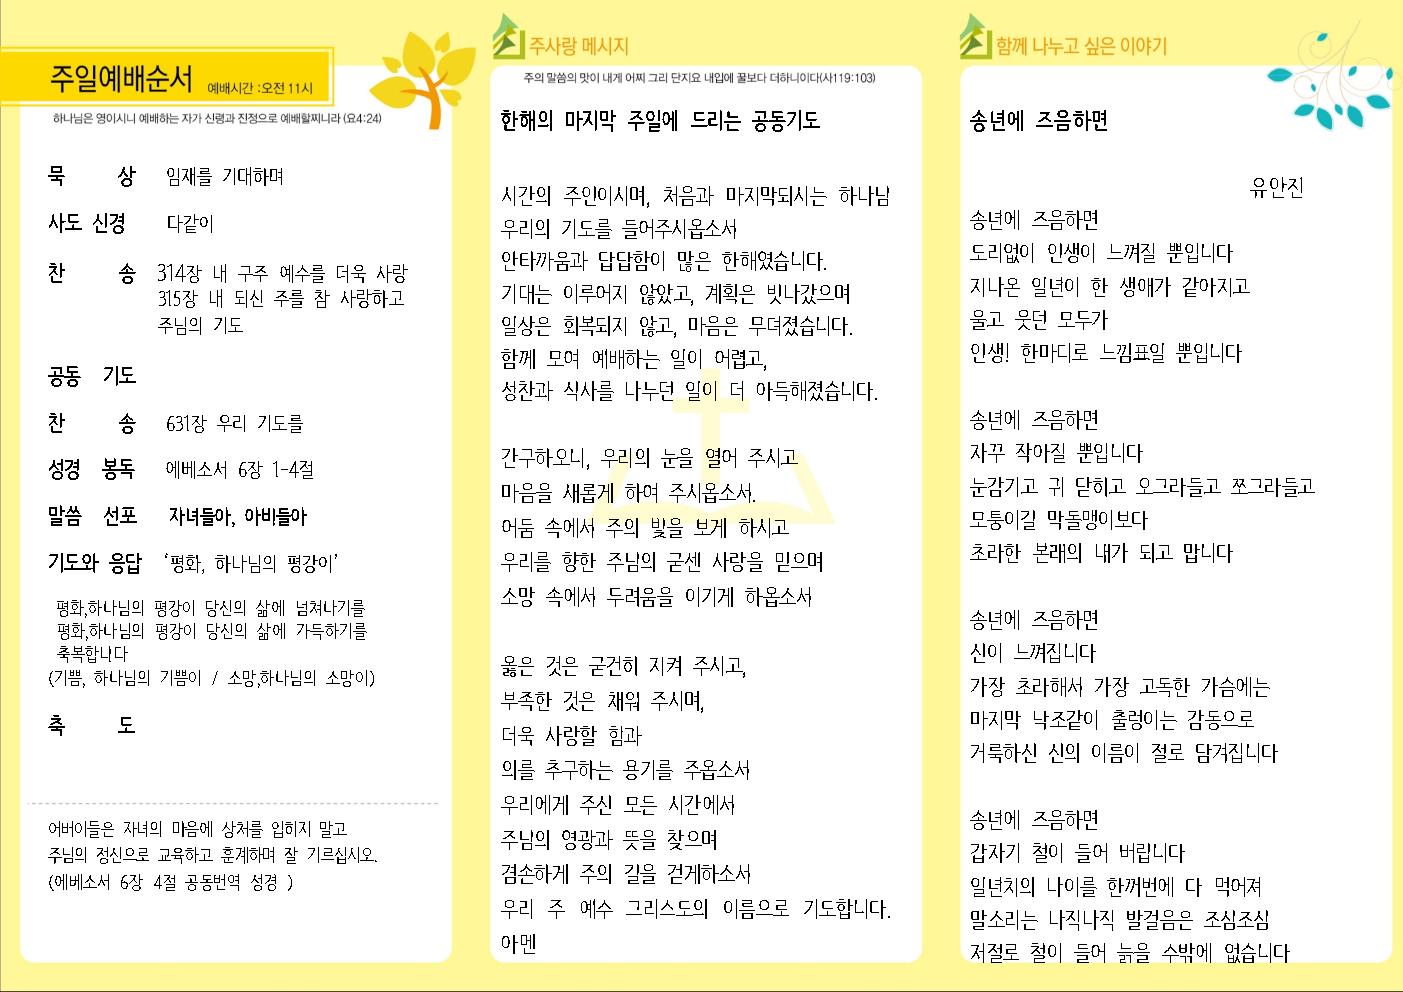 주일예배순서 예배시간 :오전 11시
하나님은 영이시니 예배하는 자가 신령과 진정으로 예배할찌니라 (요4:24)
묵 상 임재를 기대하며
사도 신경 다같이
찬 송 314장 내 구주 예수를 더욱 사랑
315장 내 되신 주를 참 사랑하고
주님의 기도
공동 기도
찬 송 631장 우리 기도를
성경 봉독 에베소서 6장 1-4절
말씀 선포 자녀들아, 아비들아
기도와 응답 ‘평화, 하나님의 평강이’
평화,하나님의 평강이 당신의 삶에 넘쳐나기를
평화,하나님의 평강이 당신의 삶에 가득하기를
축복합니다
(기쁨, 하나님의 기쁨이 / 소망,하나님의 소망이)
축 도
어버이들은 자녀의 마음에 상처를 입히지 말고
주님의 정신으로 교육하고 훈계하며 잘 기르십시오.
(에베소서 6장 4절 공동번역 성경 )
주사랑 메시지
주의 말씀의 맛이 내게 어찌 그리 단지요 내입에 꿀보다 더하니이다(시119:103)
한해의 마지막 주일에 드리는 공동기도
시간의 주인이시며, 처음과 마지막되시는 하나님
우리의 기도를 들어주시옵소서
안타까움과 답답함이 많은 한해였습니다.
기대는 이루어지 않았고, 계획은 빗나갔으며
일상은 회복되지 않고, 마음은 무뎌졌습니다.
함께 모여 예배하는 일이 어렵고,
성찬과 식사를 나누던 일이 더 아득해졌습니다.
간구하오니, 우리의 눈을 열어 주시고
마음을 새롭게 하여 주시옵소서.
어둠 속에서 주의 빛을 보게 하시고
우리를 향한 주님의 굳센 사랑을 믿으며
소망 속에서 두려움을 이기게 하옵소서
옳은 것은 굳건히 지켜 주시고,
부족한 것은 채워 주시며,
더욱 사랑할 힘과
의를 추구하는 용기를 주옵소서
우리에게 주신 모든 시간에서
주님의 영광과 뜻을 찾으며
겸손하게 주의 길을 걷게하소서
우리 주 예수 그리스도의 이름으로 기도합니다.
아멘
함께 나누고 싶은 이야기
송년에 즈음하면
유안진
송년에 즈음하면
도리없이 인생이 느껴질 뿐입니다
지나온 일년이 한 생애가 같아지고
울고 웃던 모두가
인생! 한마디로 느낌표일 뿐입니다
송년에 즈음하면
자꾸 작아질 뿐입니다
눈감기고 귀 닫히고 오그라들고 쪼그라들고
모퉁이길 막돌맹이보다
초라한 본래의 내가 되고 맙니다
송년에 즈음하면
신이 느껴집니다
가장 초라해서 가장 고독한 가슴에는
마지막 낙조같이 출렁이는 감동으로
거룩하신 신의 이름이 절로 담겨집니다
송년에 즈음하면
갑자기 철이 들어 버립니다
일년치의 나이를 한꺼번에 다 먹어져
말소리는 나직나직 발걸음은 조심조심
저절로 철이 들어 늙을 수밖에 없습니다